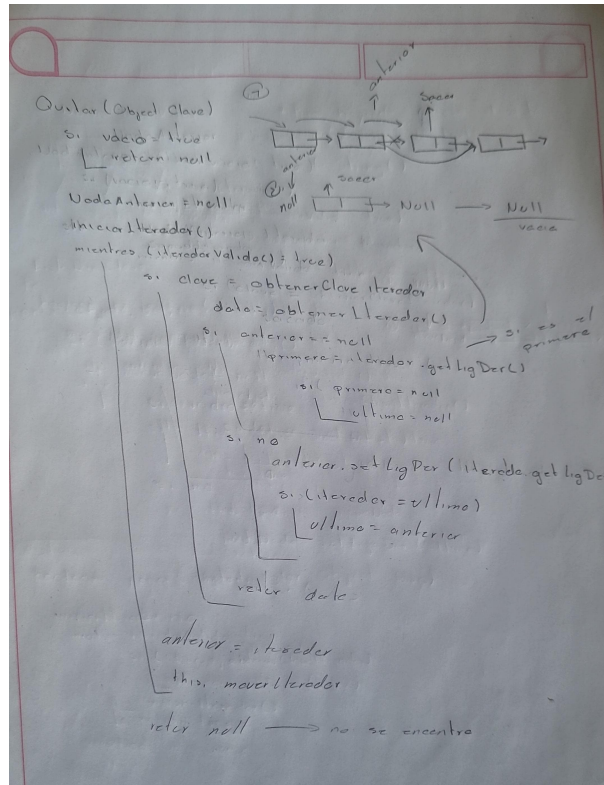 Quitar (Object Clave)
si vacio = true
return null
Nodo Anterior = null
iniciar Iterador ()
mientras (iterador Valido() = true)
si clave = obtener Clave iterador
dato = obtener Iterador ()
si anterior == null
primero = iterador . get Lig Der ()
si primero = null
ultimo = null
si no
anterior . set Lig Der ( iterado . get Lig De
si (iterador = ultimo)
ultimo = anterior
retor dato
anterior = iterador
this. mover Iterador
retor null → no se encontro
1
anterior
sacar
anterior
2
null
sacar
Null → Null
vacia
→ si es el
primero